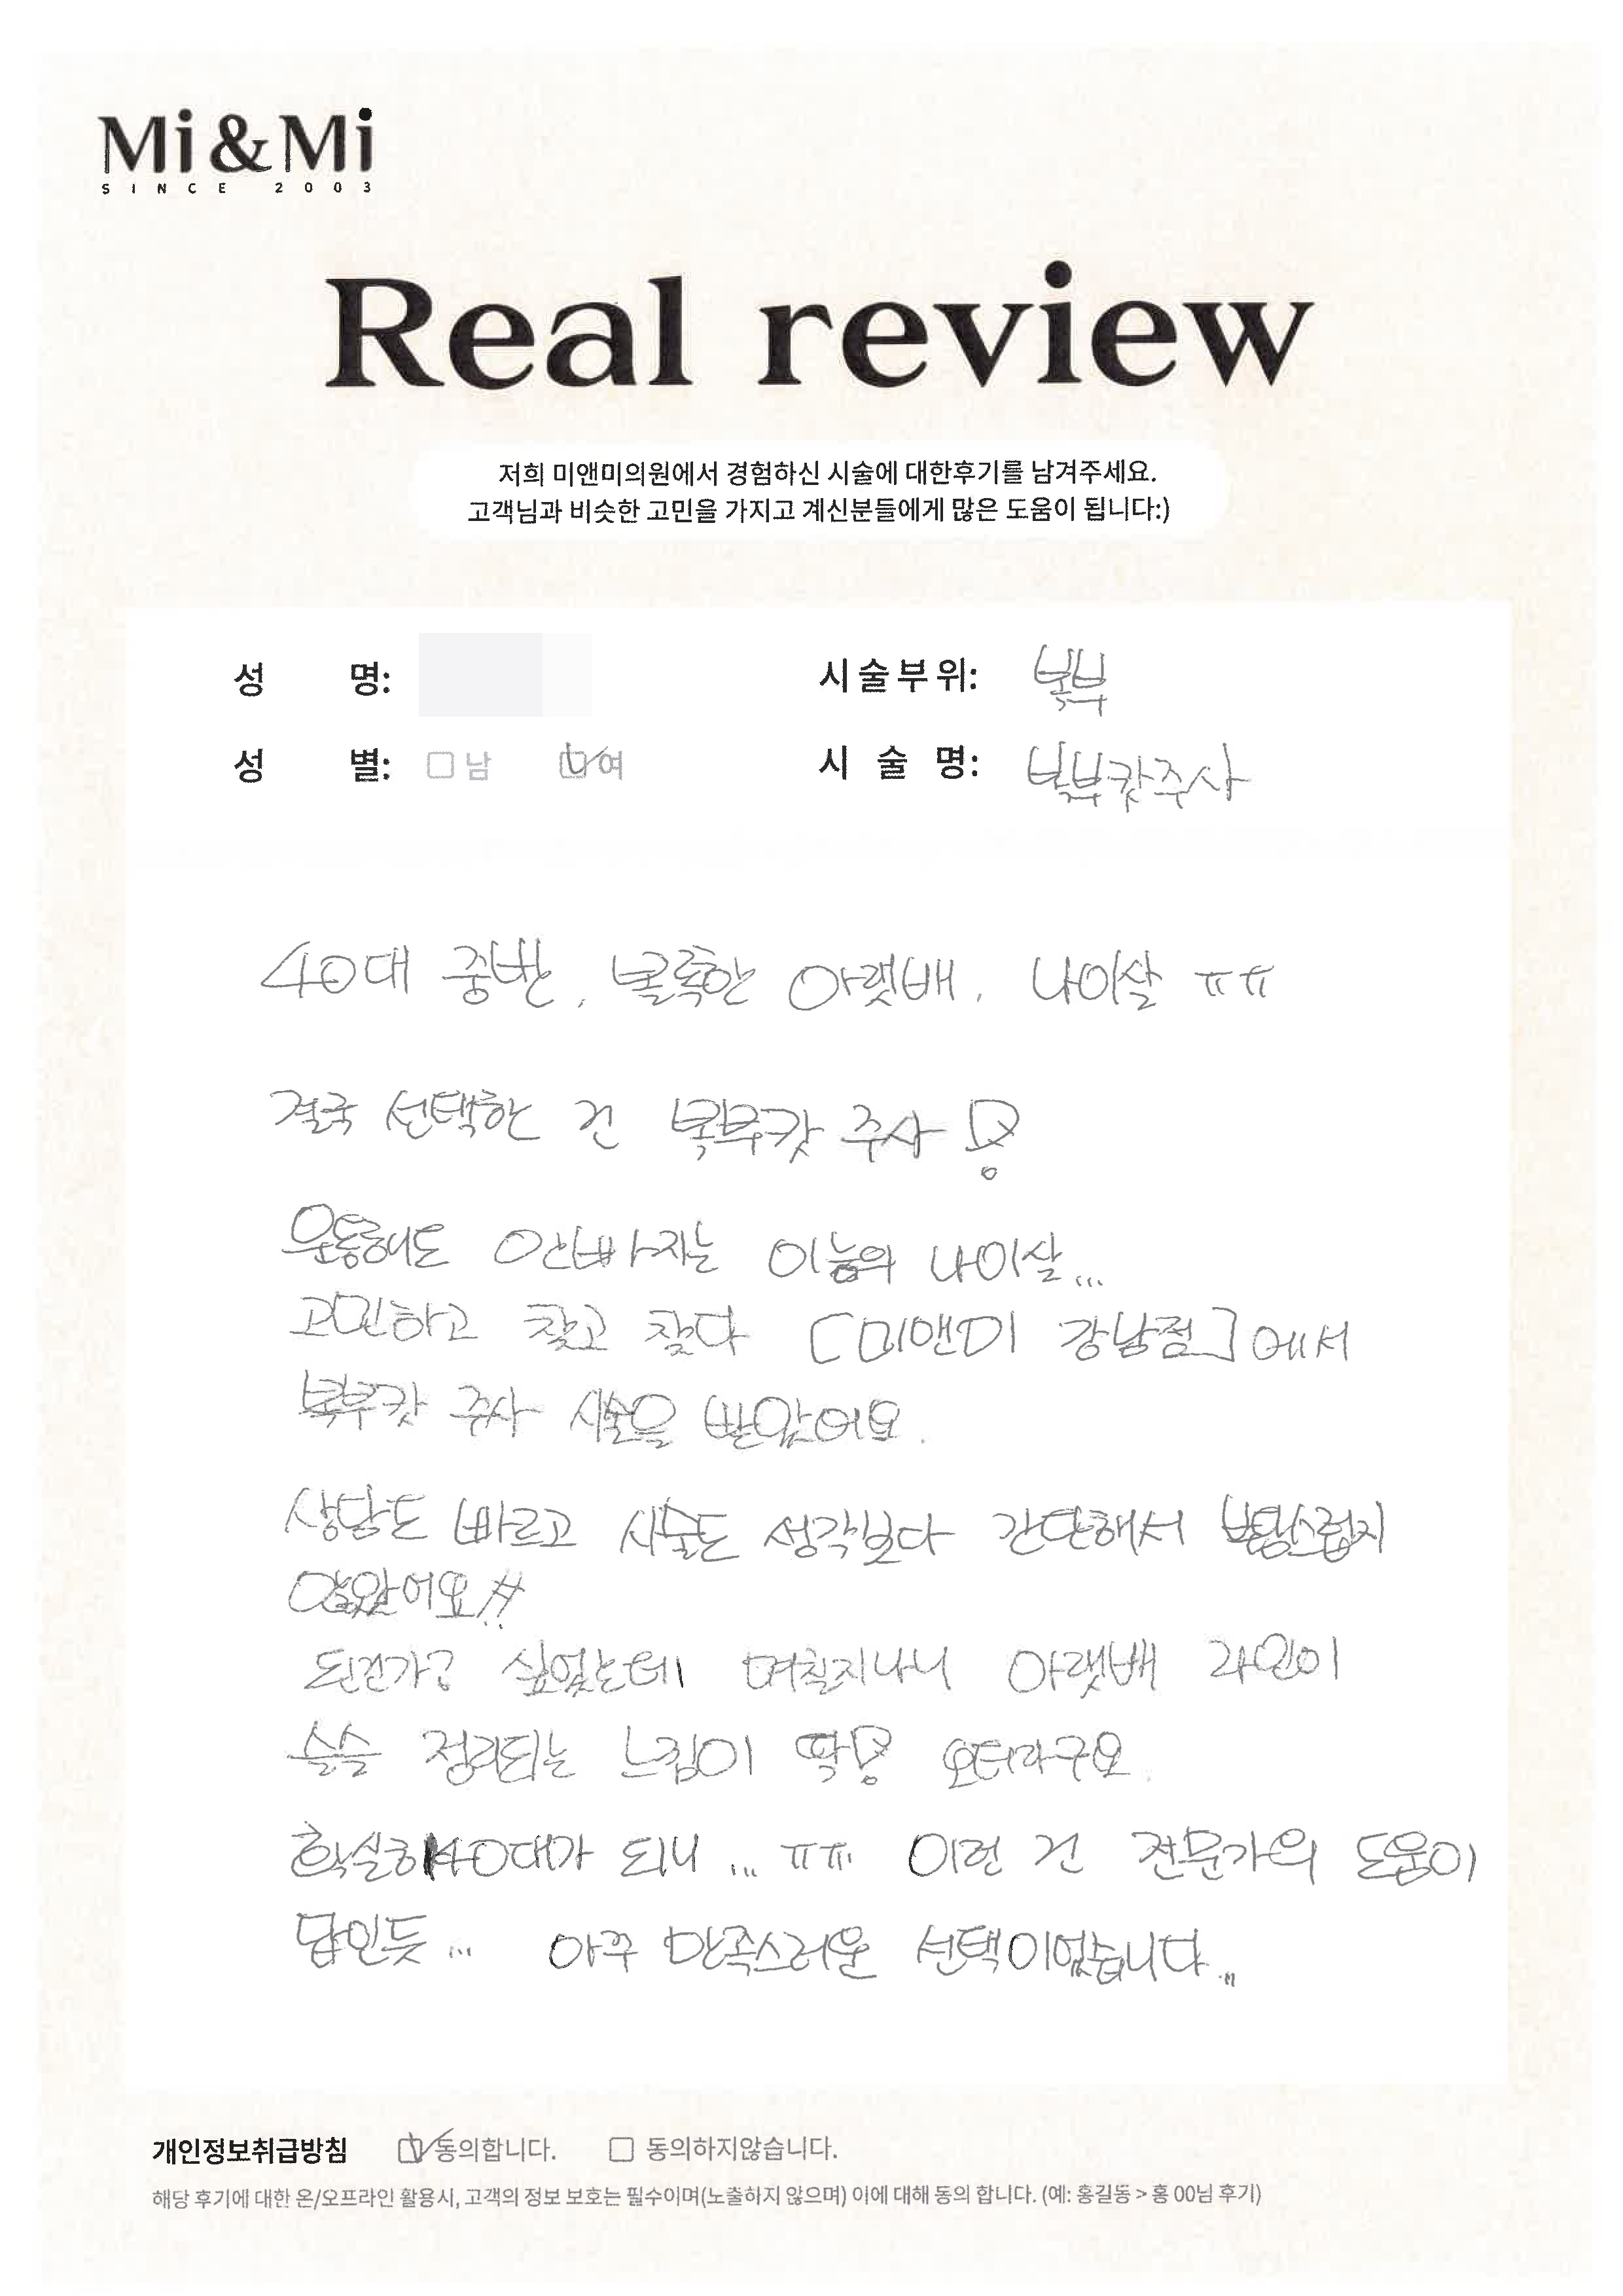 Mi&Mi
SINCE 2003
Real review
저희 미앤미의원에서 경험하신 시술에 대한후기를 남겨주세요.
고객님과 비슷한 고민을 가지고 계신분들에게 많은 도움이 됩니다:)
성 명: 시술부위: 복부
성 별: 남 여 시 술 명: 복부캇주사
40대 중반, 볼록한 아랫배, 나이살 ㅠㅠ
결국 선택한 건 복부캇 주사!
운동해도 안빠지는 이놈의 나이살...
고민하고 찾고 찾다 [미앤미 강남점]에서
복부캇 주사 시술을 받았어요.
상담도 빠르고 시술도 생각보다 간단해서 부담스럽지
않았어요!!
된건가? 싶었는데 며칠지나니 아랫배 라인이
슬슬 정리되는 느낌이 딱! 오더라구요.
확실히 40대가 되니... ㅠㅠ 이런 건 전문가의 도움이
답인듯... 아주 만족스러운 선택이었습니다..
개인정보취급방침 동의합니다. 동의하지않습니다.
해당 후기에 대한 온/오프라인 활용시, 고객의 정보 보호는 필수이며(노출하지 않으며) 이에 대해 동의 합니다. (예: 홍길동 > 홍 00님 후기)